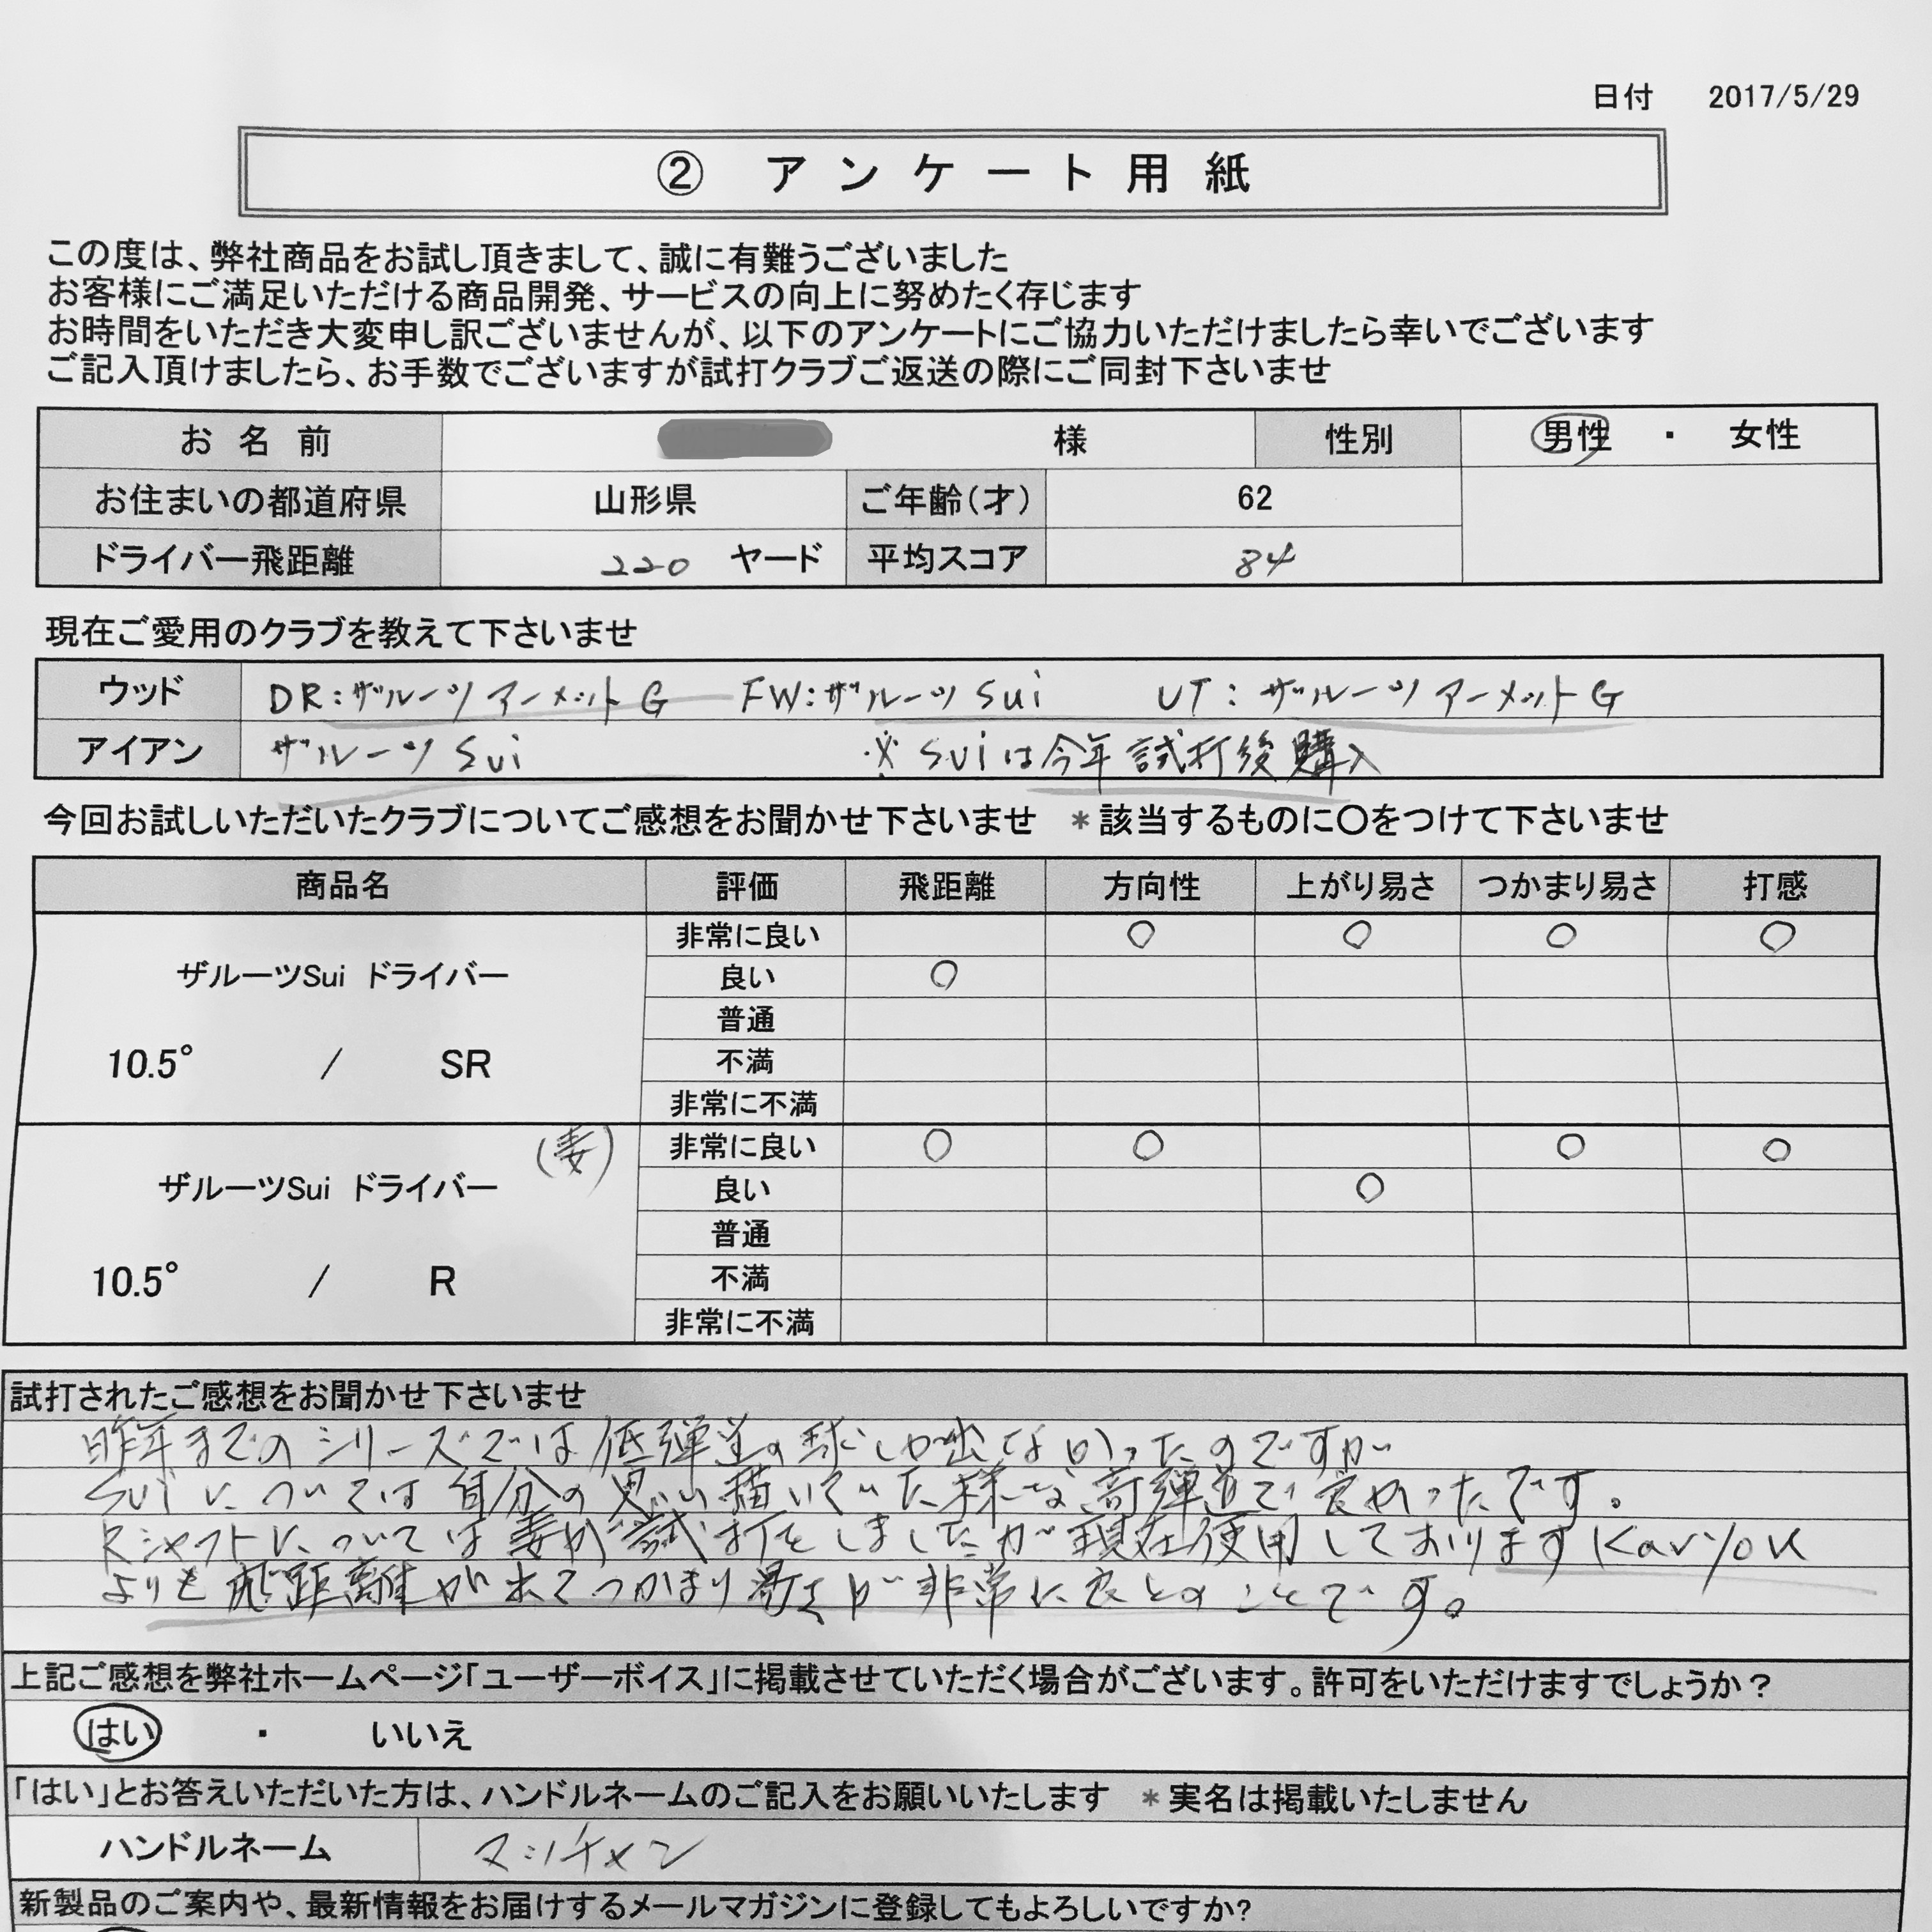 日付 2017/5/29
② アンケート用紙
この度は、弊社商品をお試し頂きまして、誠に有難うございました
お客様にご満足いただける商品開発、サービスの向上に努めたく存じます
お時間をいただき大変申し訳ございませんが、以下のアンケートにご協力いただけましたら幸いでございます
ご記入頂けましたら、お手数でございますが試打クラブご返送の際にご同封下さいませ
お名前 様 性別 男性 ・ 女性
お住まいの都道府県 山形県 ご年齢(才) 62
ドライバー飛距離 220 ヤード 平均スコア 84
現在ご愛用のクラブを教えて下さいませ
ウッド DR:ザルーツ アーメット G FW:ザルーツ Sui UT:ザルーツ アーメット G
アイアン ザルーツ Sui ※Suiは今年試打後購入
今回お試しいただいたクラブについてご感想をお聞かせ下さいませ *該当するものに〇をつけて下さいませ
商品名 評価 飛距離 方向性 上がり易さ つかまり易さ 打感
非常に良い ○ ○ ○ ○
ザルーツSui ドライバー 良い ○
普通
10.5° / SR 不満
非常に不満
(妻) 非常に良い ○ ○ ○ ○
ザルーツSui ドライバー 良い ○
普通
10.5° / R 不満
非常に不満
試打されたご感想をお聞かせ下さいませ
昨年までのシリーズでは低弾道の球しか出なかったのですが
Suiについては自分の思い描いていた様な高弾道で良かったです。
Rシャフトについては妻が試打をしましたが現在使用しております Karyou
よりも飛距離が出てつかまり易さが非常に良とのことです。
上記ご感想を弊社ホームページ「ユーザーボイス」に掲載させていただく場合がございます。許可をいただけますでしょうか?
はい ・ いいえ
「はい」とお答えいただいた方は、ハンドルネームのご記入をお願いいたします *実名は掲載いたしません
ハンドルネーム
新製品のご案内や、最新情報をお届けするメールマガジンに登録してもよろしいですか?